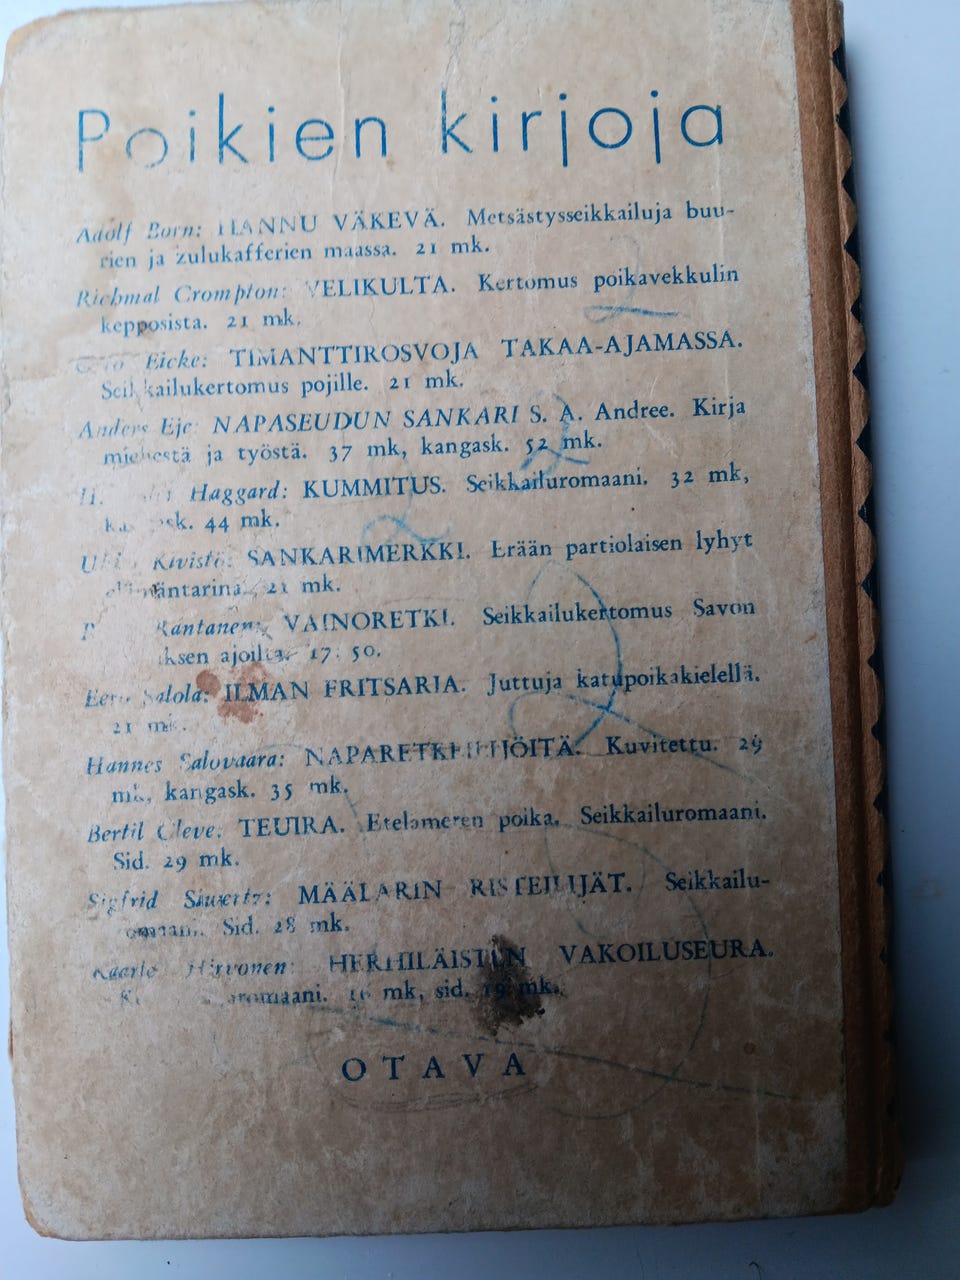 Poikien kirjoja
Adolf Born: HANNU VÄKEVÄ. Metsästysseikkailuja buu-
rien ja zulukafferien maassa. 21 mk.
Richmal Crompton: VELIKULTA. Kertomus poikavekkulin
kepposista. 21 mk.
Eicke: TIMANTTIROSVOJA TAKAA-AJAMASSA.
Seikkailukertomus pojille. 21 mk.
Anders Eje: NAPASEUDUN SANKARI S. A. Andree. Kirja
miehestä ja työstä. 37 mk, kangask. 52 mk.
Haggard: KUMMITUS. Seikkailuromaani. 32 mk,
44 mk.
Kivistö: SANKARIMERKKI. Erään partiolaisen lyhyt
elämäntarina. 21 mk.
Rantanen: VAINORETKI. Seikkailukertomus Savon
ajoilta. 17: 50.
Eero Salola: ILMAN FRITSARIA. Juttuja katupoikakielellä.
21 mk.
Hannes Salovaara: NAPARETKEILIJÖITÄ. Kuvitettu. 29
mk, kangask. 35 mk.
Bertil Cleve: TEUIRA. Etelämeren poika. Seikkailuromaani.
Sid. 29 mk.
Sigfrid Siwertz: MÄÄLARIN RISTEILIJÄT. Seikkailu-
romaani. Sid. 28 mk.
Kaarlo Hirvonen: HERHILÄISTEN VAKOILUSEURA.
16 mk, sid. 19 mk.
OTAVA